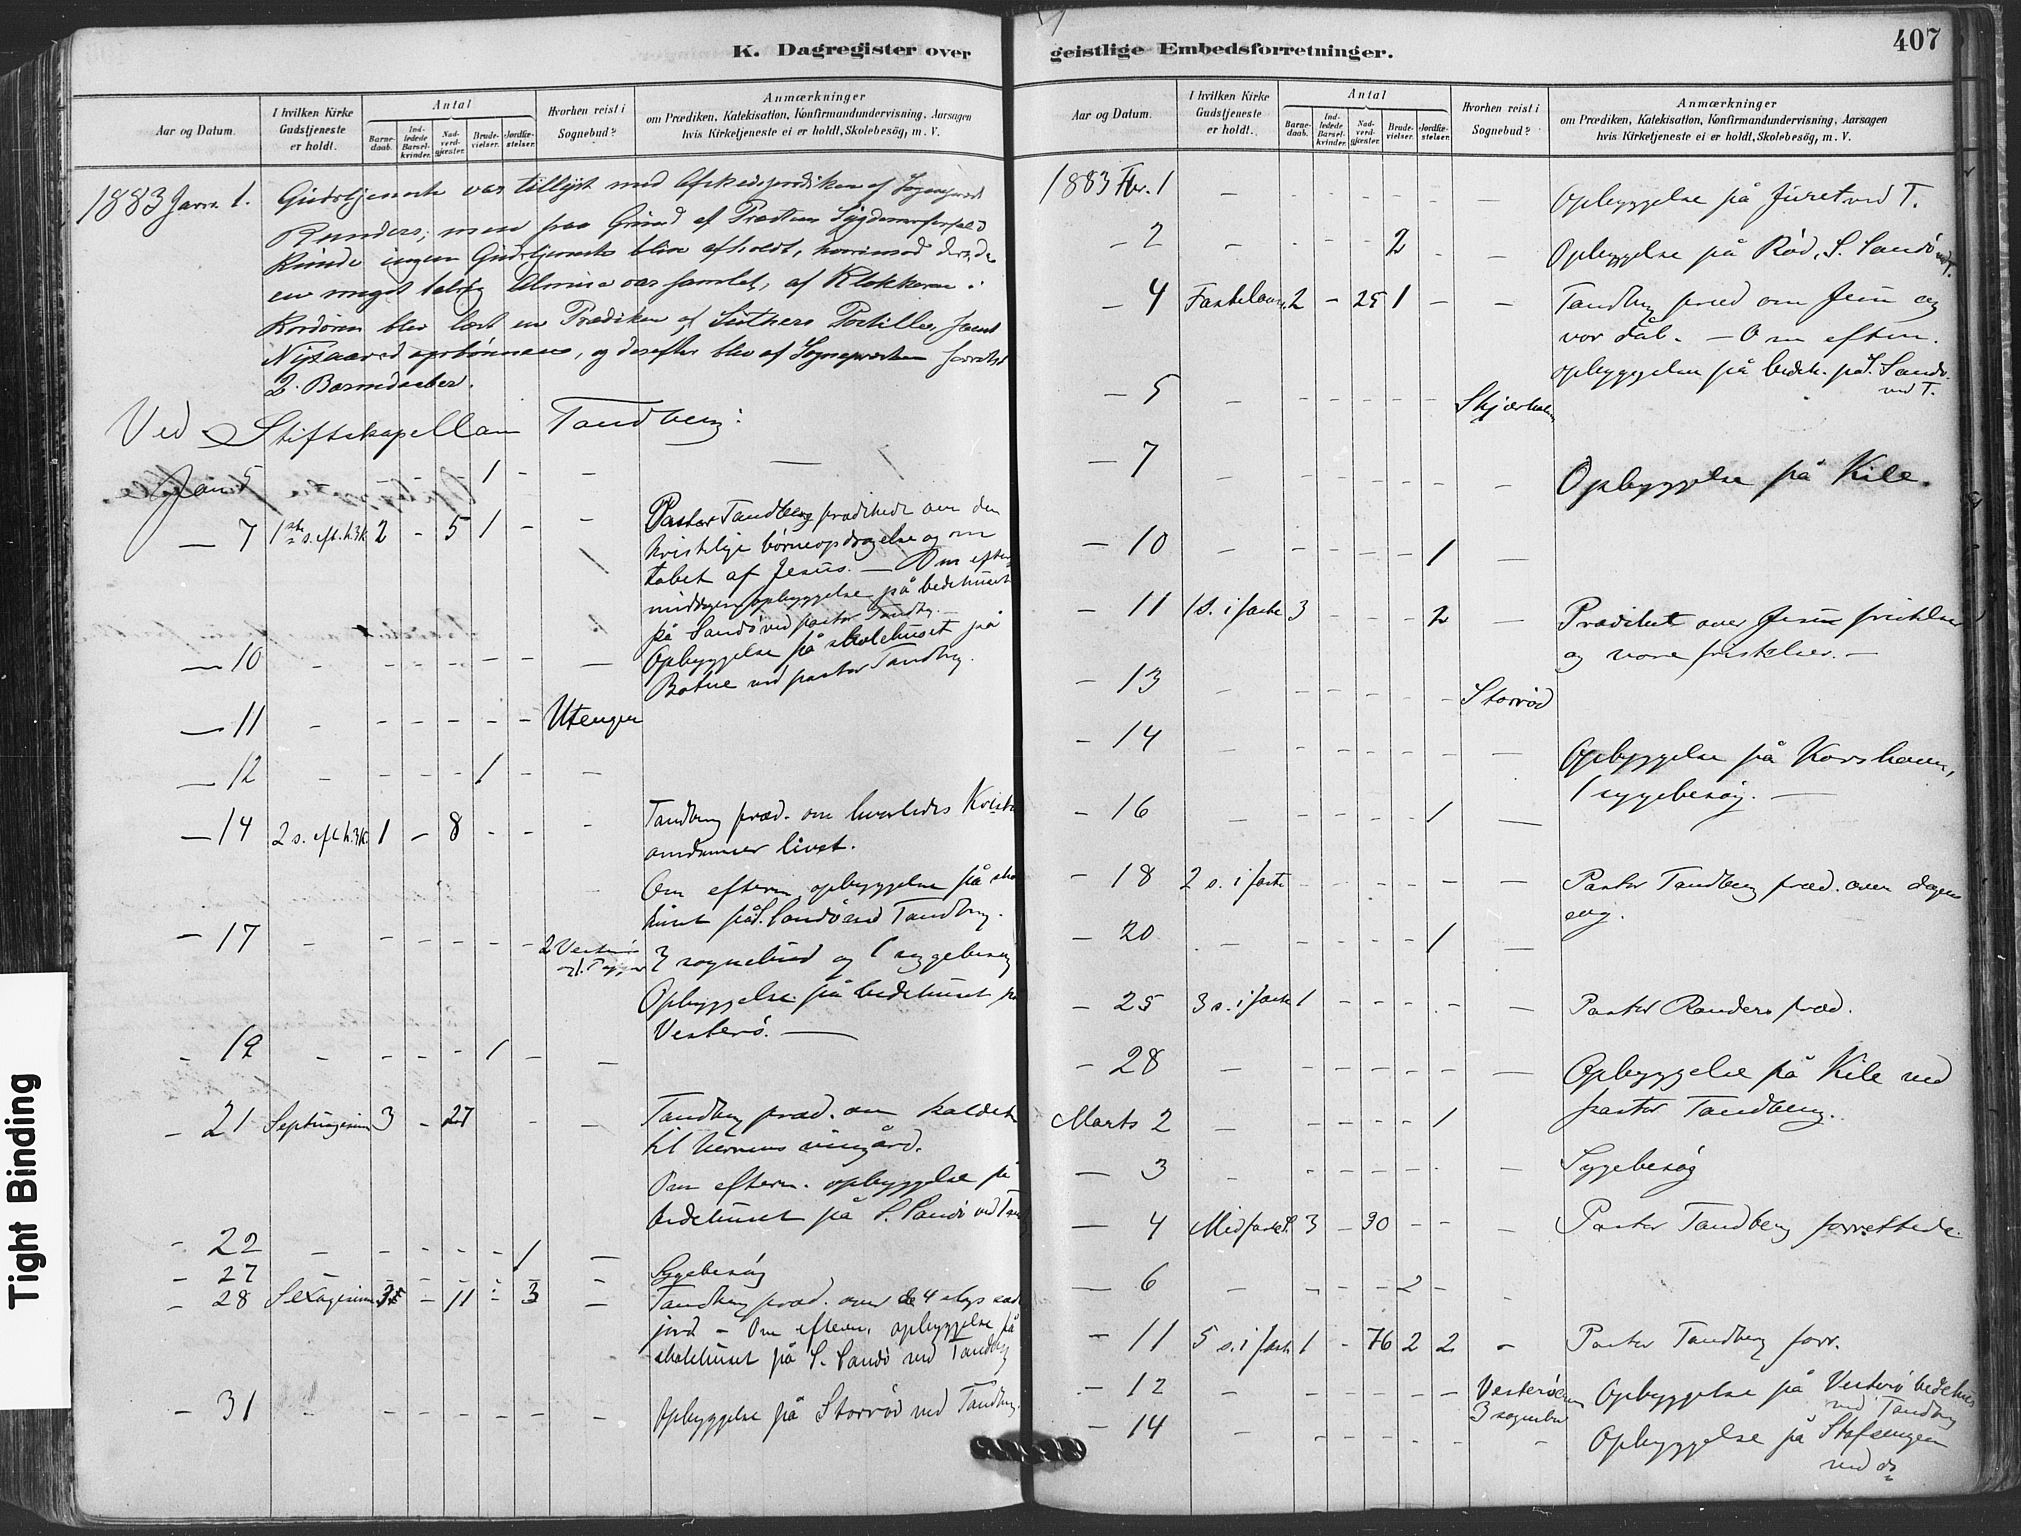 K. Dagregister over
Aar og Datum.
I hvilken Kirke Gudstjeneste er holdt.
Antal
Barnedaab.
Indledede Barselkvinder.
Nadverdgjæster.
Brudevielser.
Jordfæstelser.
Hvorhen reist i Sognebud?
Anmærkninger
om Prædiken, Katekisation, Konfirmandundervisning, Aarsagen
hvis Kirketjeneste ei er holdt, Skolebesøg, m. V.
1883 Janr. 1. Gudstjeneste var tillyst med Afskedsprædiken af Sognepræst
Randers, men paa Grund af Præstens Sygdomsforfald
kunde ingen Gudstjeneste blive afholdt, hvorimod der, da
en meget talrig Almue var samlet, af Klokkeren i
Kordøren blev læst en Prædiken af Luthers Postille, samt
Nytaars bønnen, og derefter blev af Sognepræsten forrettet
2 Barnedaaber.
Ved Stiftskapellan Tandberg:
Jan 5 - - - 1 - -
— 7 1ste s. eft. h.3k. 2 - 5 1 - - Pastor Tandberg prædikede om den
kristelige børneopdragelse og om
tabet af Jesus. — Om efter
middagen opbyggelse på bedehuset
på Sandø ved pastor Tandbg.
— 10 - - - - - - — Opbyggelse på skolehuset på
Botne ved pastor Tandbg.
— 11 - - - - - - Utengen
— 12 - - - - 1 - -
— 14 2 s. eft h.3k. 1 - 8 - - - Tandberg præd. om hvorledes Krist
omdanner livet.
Om efterm opbyggelse på skole
huset på S. Sandø ved Tandbrg.
— 17 - - - - - - 2 Vesterø og 1. 3 sognebud og 1 sygebesøg
Opbyggelse på bedehuset på
Vesterø. —
- 19 - - - - 1 - —
- 21 Septuagesima 3 - 27 - - - Tandberg præd. om kaldet
til Herrens vingård.
Om efterm. opbyggelse på
bedehuset på S. Sandø ved Tan
- 22 - - - - - 1 —
- 27 - - - - - - Sygebesøg
- 28 Sexagesima 3 - 11 - 3 — Tandberg præd. over de 4 slags sæde
jord - Om efterm. opbyggelse på
skolehuset på S. Sandø ved Tandbrg
- 31 - - - - - - - Opbyggelse på Storrød ved Tandbrg.
geistlige Embedsforretninger.
407
Aar og Datum.
I hvilken Kirke Gudstjeneste er holdt.
Antal
Barnedaab.
Indledede Barselkvinder.
Nadverdgjæster.
Brudevielser.
Jordfæstelser.
Hvorhen reist i Sognebud?
Anmærkninger
om Prædiken, Katekisation, Konfirmandundervisning, Aarsagen
hvis Kirketjeneste ei er holdt, Skolebesøg, m. V.
1883 Fbr. 1 - - - - - - — Opbyggelse på Furet ved T.
- 2 - - - - 2 - - Opbyggelse på Rød, S. Sandø ved T.
- 4 Fastelavn. 2 - 25 1 - - Tandbrg præd om Jesu og
vor dåb. - Om efterm.
opbyggelse på bedeh. på S. Sandø
ved T.
- 5 - - - - - - Skjærhalen
— 7 - - - - - - - Opbyggelse på Kile.
- 10 - - - - - 1 —
- 11 1 s. i faste 3 - - - 2 - Prædiket over Jesu fristelser
og vore fristelser. —
- 13 - - - - - - Storrød
- 14 - - - - - - — Opbyggelse på Korshavn,
1 sygebesøg. —
- 16 - - - - - 1 —
- 18 2 s. i faste - - - - - — Pastor Tandberg præd. over dagens
evg.
- 20 - - - - - 1 —
- 25 3 s. i faste 1 - - - - - Pastor Randers præd.
- 28 - - - - - - — Opbyggelse på Kile ved
pastor Tandberg.
Marts 2 - - - - - 1
— 3 - - - - - - - Sygebesøg
— 4 Midfaste S. 3 - 30 - - - Pastor Tandberg forrettede.
— 6 - - - - 2 -
- 11 5 s. i faste 1 - 76 2 2 - Pastor Tandberg forr.
- 12 - - - - - - Vesterøen Opbyggelse på Vesterø bedehus
3 sognebud ved Tandbrg
- 14 - - - - - - - Opbyggelse på Stafsengen
ved do
Tight Binding